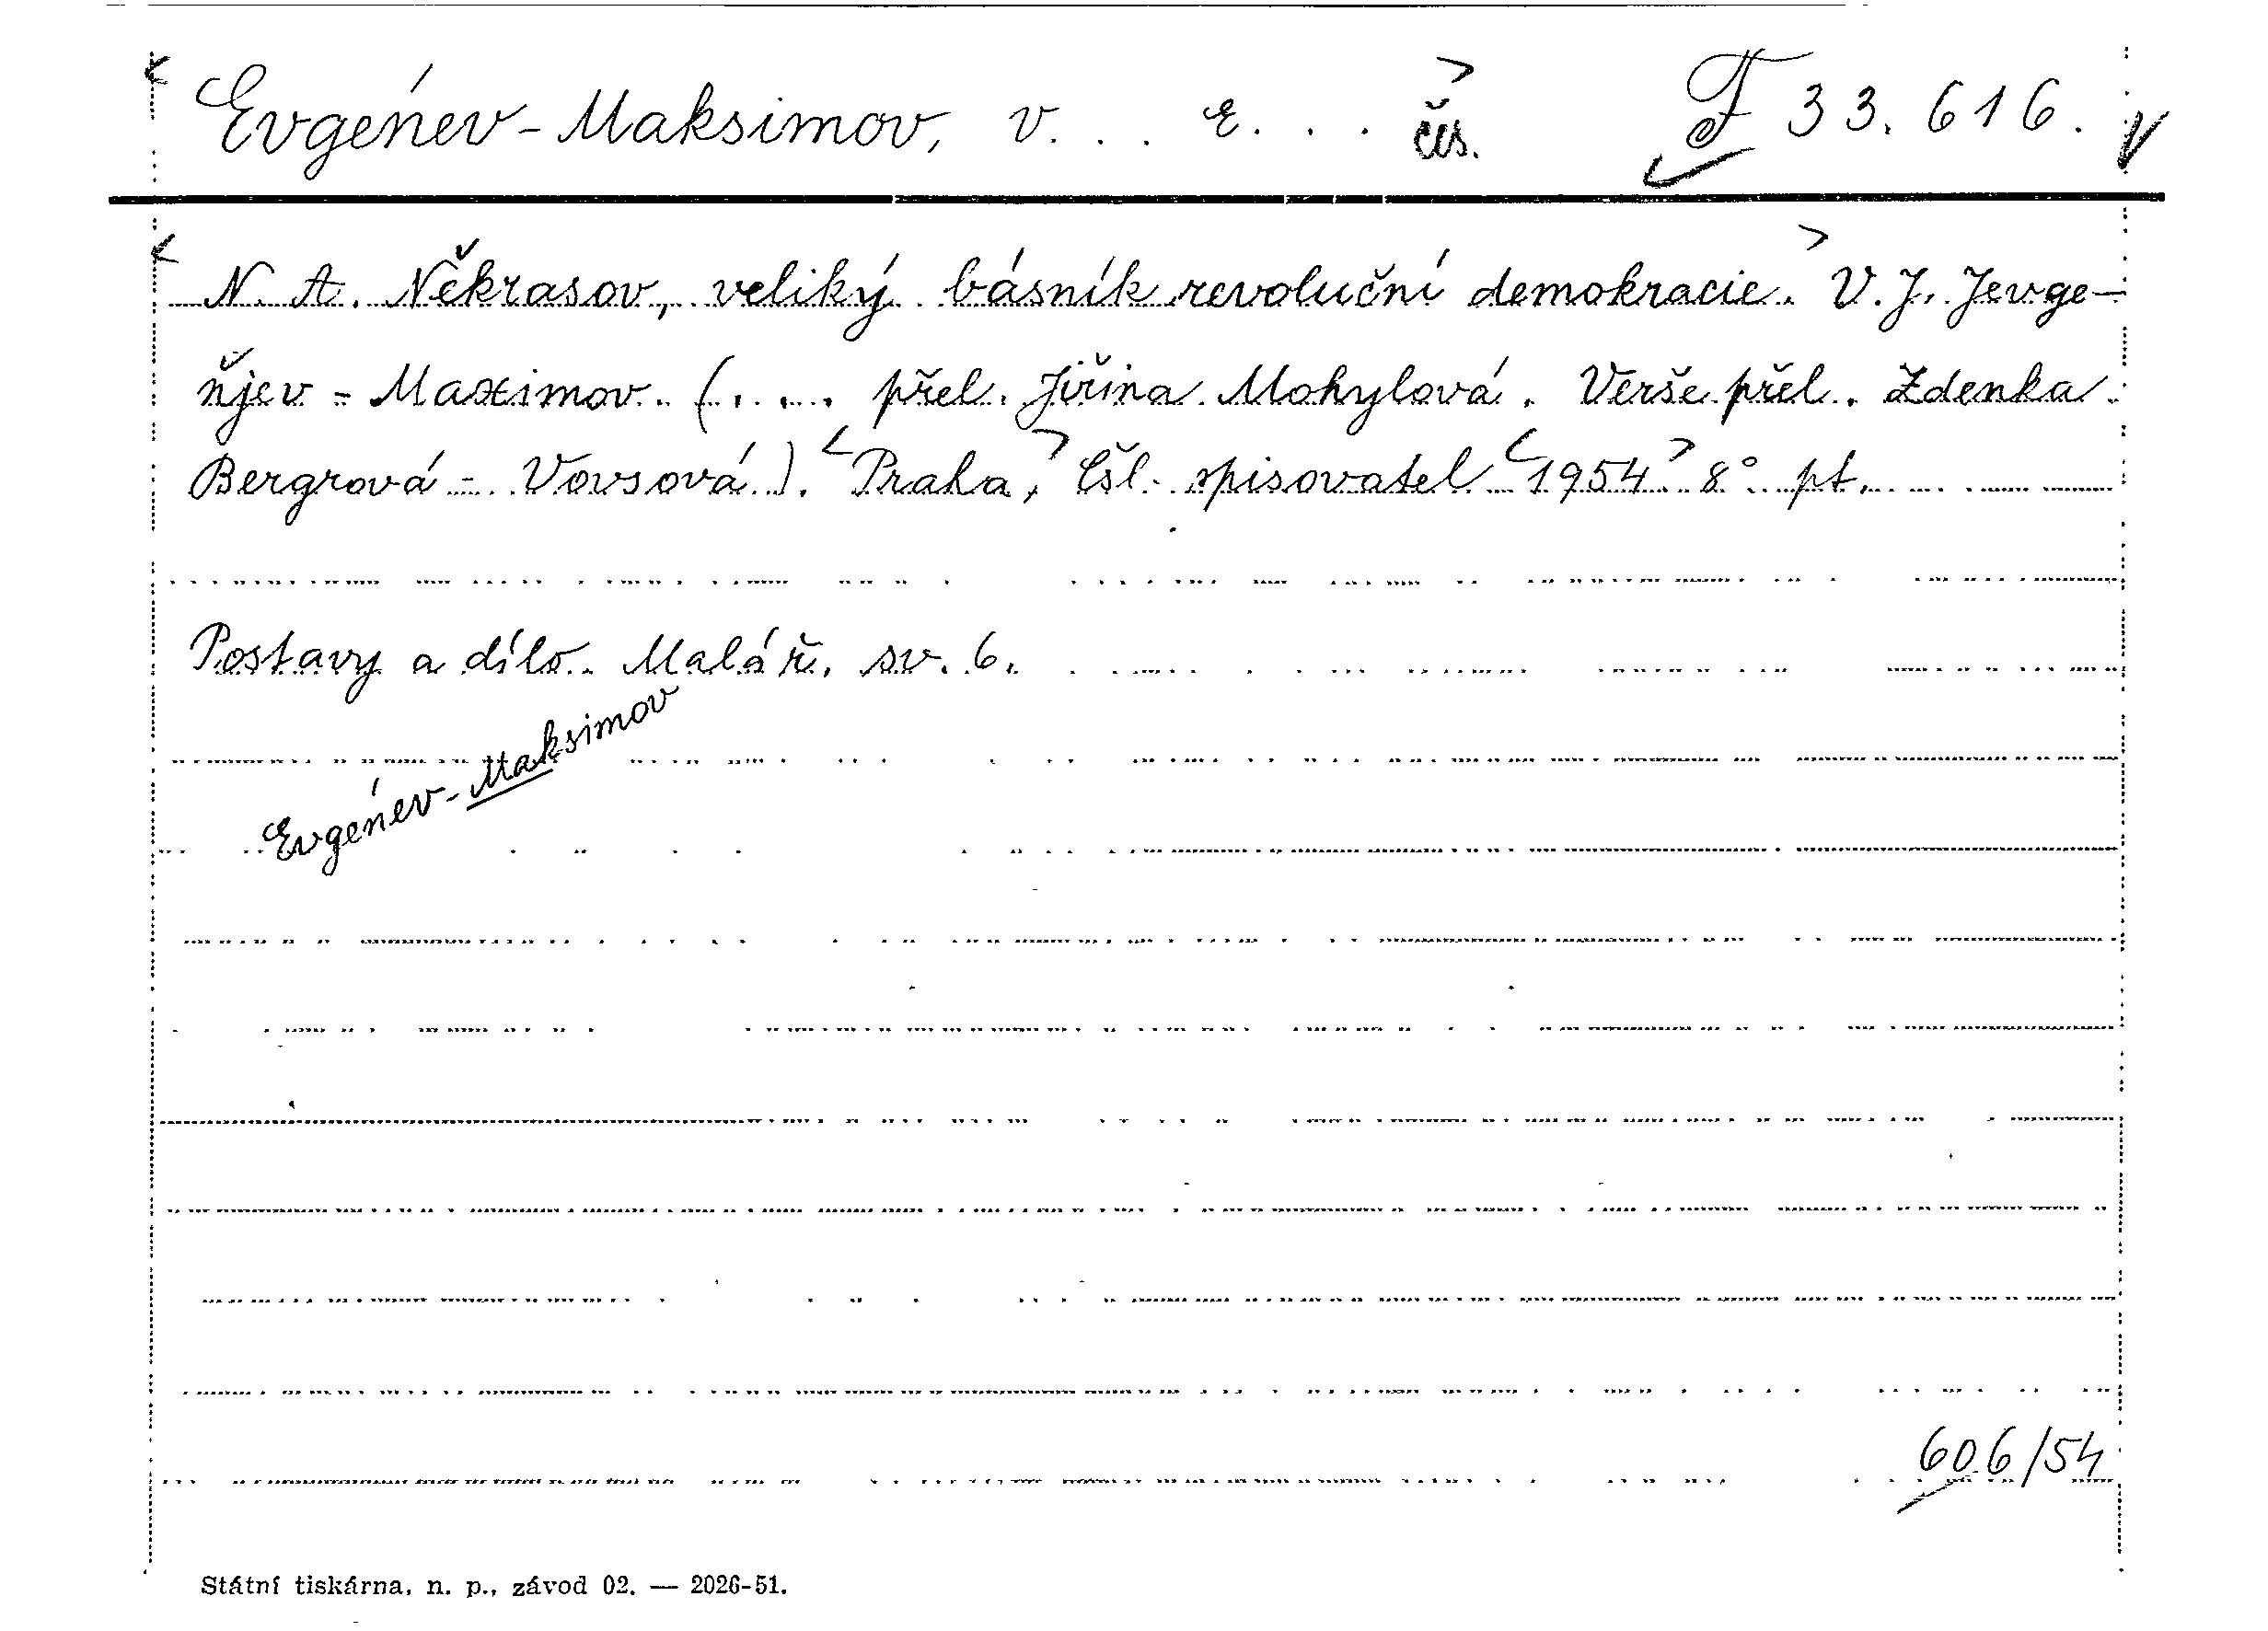 Evgeńev-Maksimov, V... E... čes. F 33.616.
N. A. Někrasov, veliký básník revoluční demokracie. V. J. Jevge-
ňjev-Maximov. (... přel. Jiřina Mohylová. Verše přel. Zdenka
Bergrová-Vovsová). Praha, Čsl. spisovatel 1954 8° pt.
Postavy a dílo. Malá ř. sv. 6.
Evgeńev-Maksimov
606/54
Státní tiskárna, n. p., závod 02. — 2026-51.